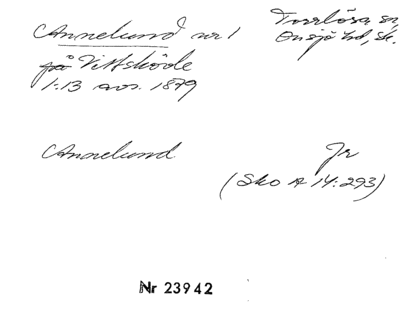 Annelund nr 1
Torrlösa sn,
Onsjö hd, Sk.
på Vittskövle
1:13 avs. 1879
Annelund
Jr
(Sko A 14:293)
Nr 23942